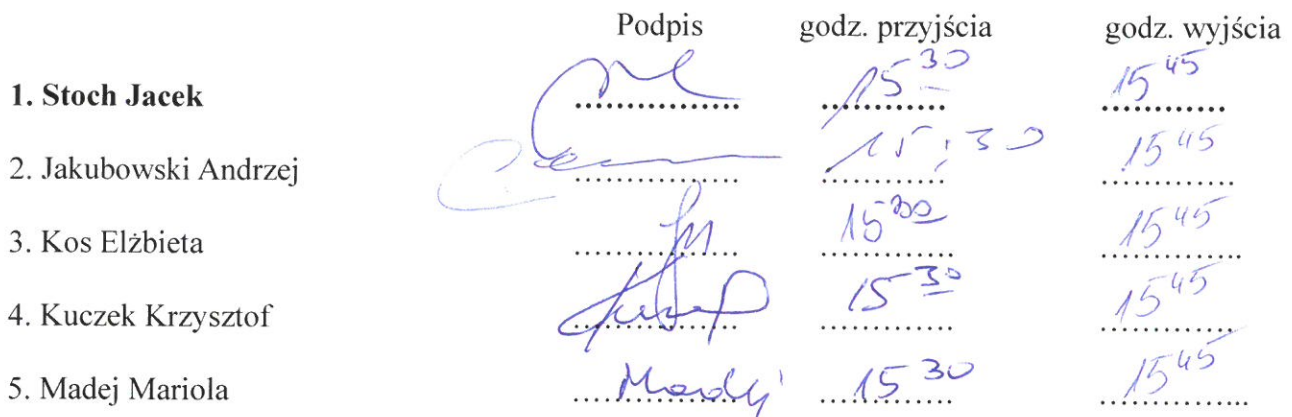 Podpis godz. przyjścia godz. wyjścia
1. Stoch Jacek ............... 15 30 15 45
2. Jakubowski Andrzej ............... 15:30 15 45
3. Kos Elżbieta ............... 15 30 15 45
4. Kuczek Krzysztof ............... 15 30 15 45
5. Madej Mariola Madej 15 30 15 45